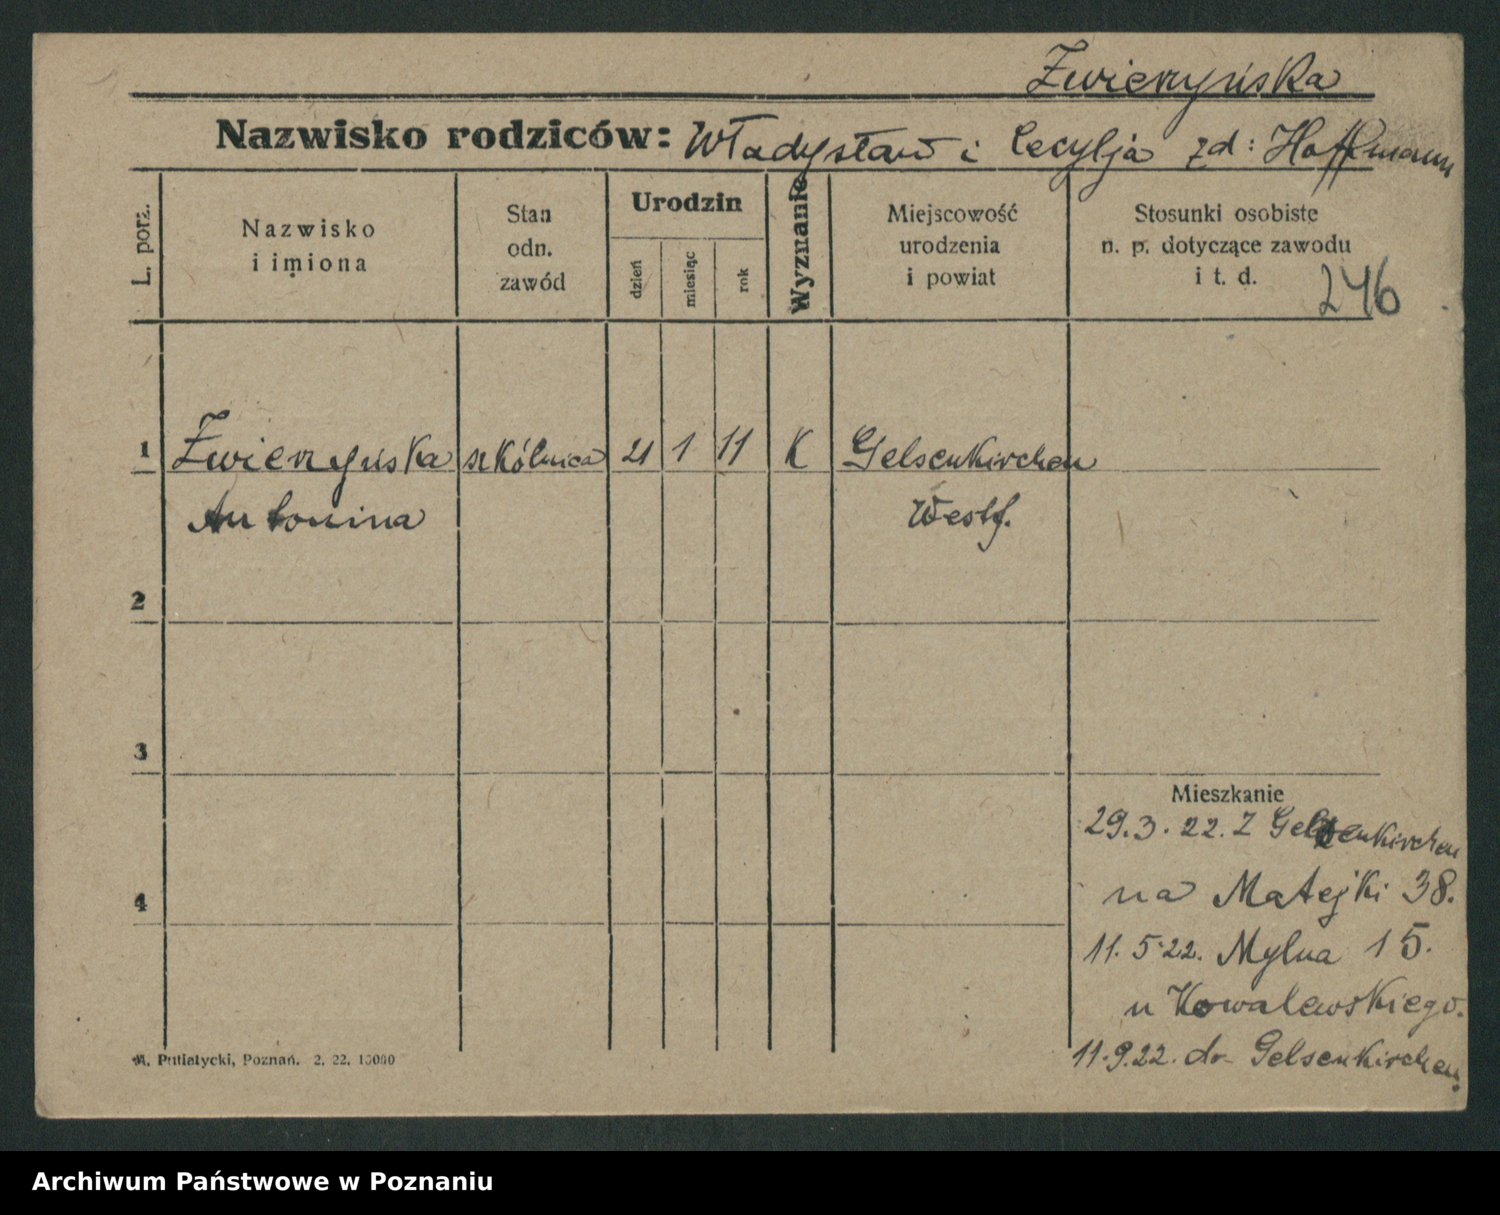 Zwierzyńska
Nazwisko rodziców: Władysław i Cecylja zd: Hoffmann
L. porz.
Nazwisko
i imiona
Stan
odn.
zawód
Urodzin
dzień
miesiąc
rok
Wyznanie
Miejscowość
urodzenia
i powiat
Stosunki osobiste
n. p. dotyczące zawodu
i t. d.
246
1 Zwierzyńska szkólnica 21 1 11 K Gelsenkirchen
Antonina Westf.
2
3
Mieszkanie
29.3.22. Z Gelsenkirchen
na Matejki 38.
4
11.5.22. Mylna 15.
u Kowalewskiego.
11.9.22. do Gelsenkirchen.
M. Putiatycki, Poznań. 2. 22. 10000
Archiwum Państwowe w Poznaniu